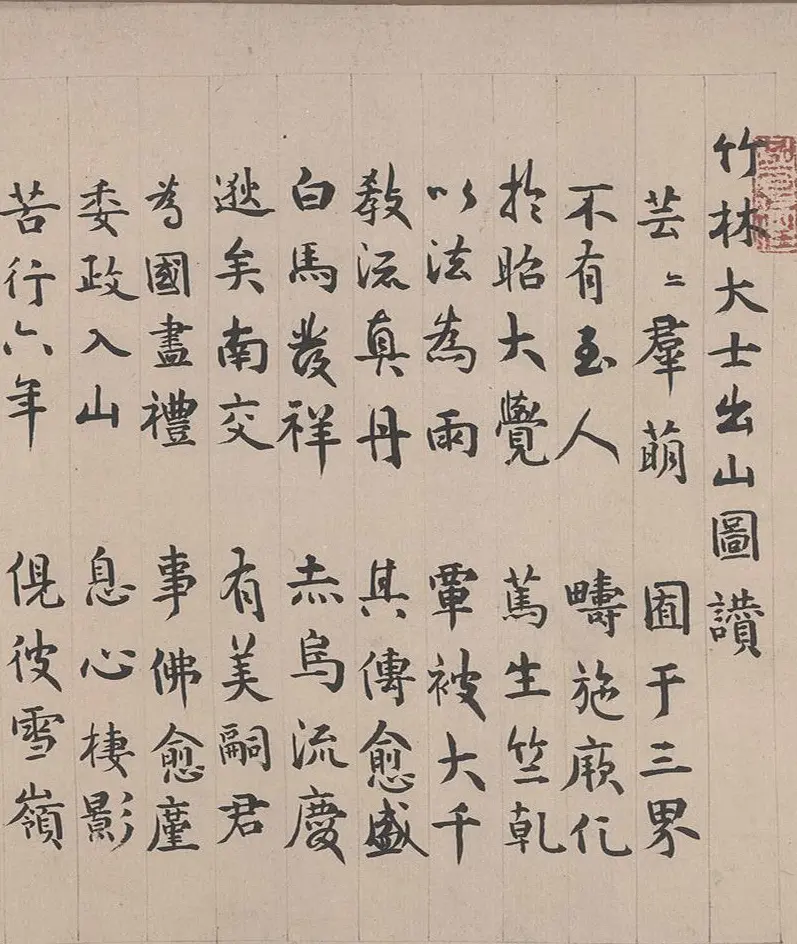 竹林大士出山圖讚
芸〻羣萌 囿于三界
不有至人 疇施厥化
於昭大覺 篤生竺乾
以法為雨 覃被大千
教流真丹 其傳愈盛
白馬發祥 赤烏流慶
逖矣南交 有美嗣君
為國盡禮 事佛愈虔
委政入山 息心棲影
苦行六年 俔彼雪嶺